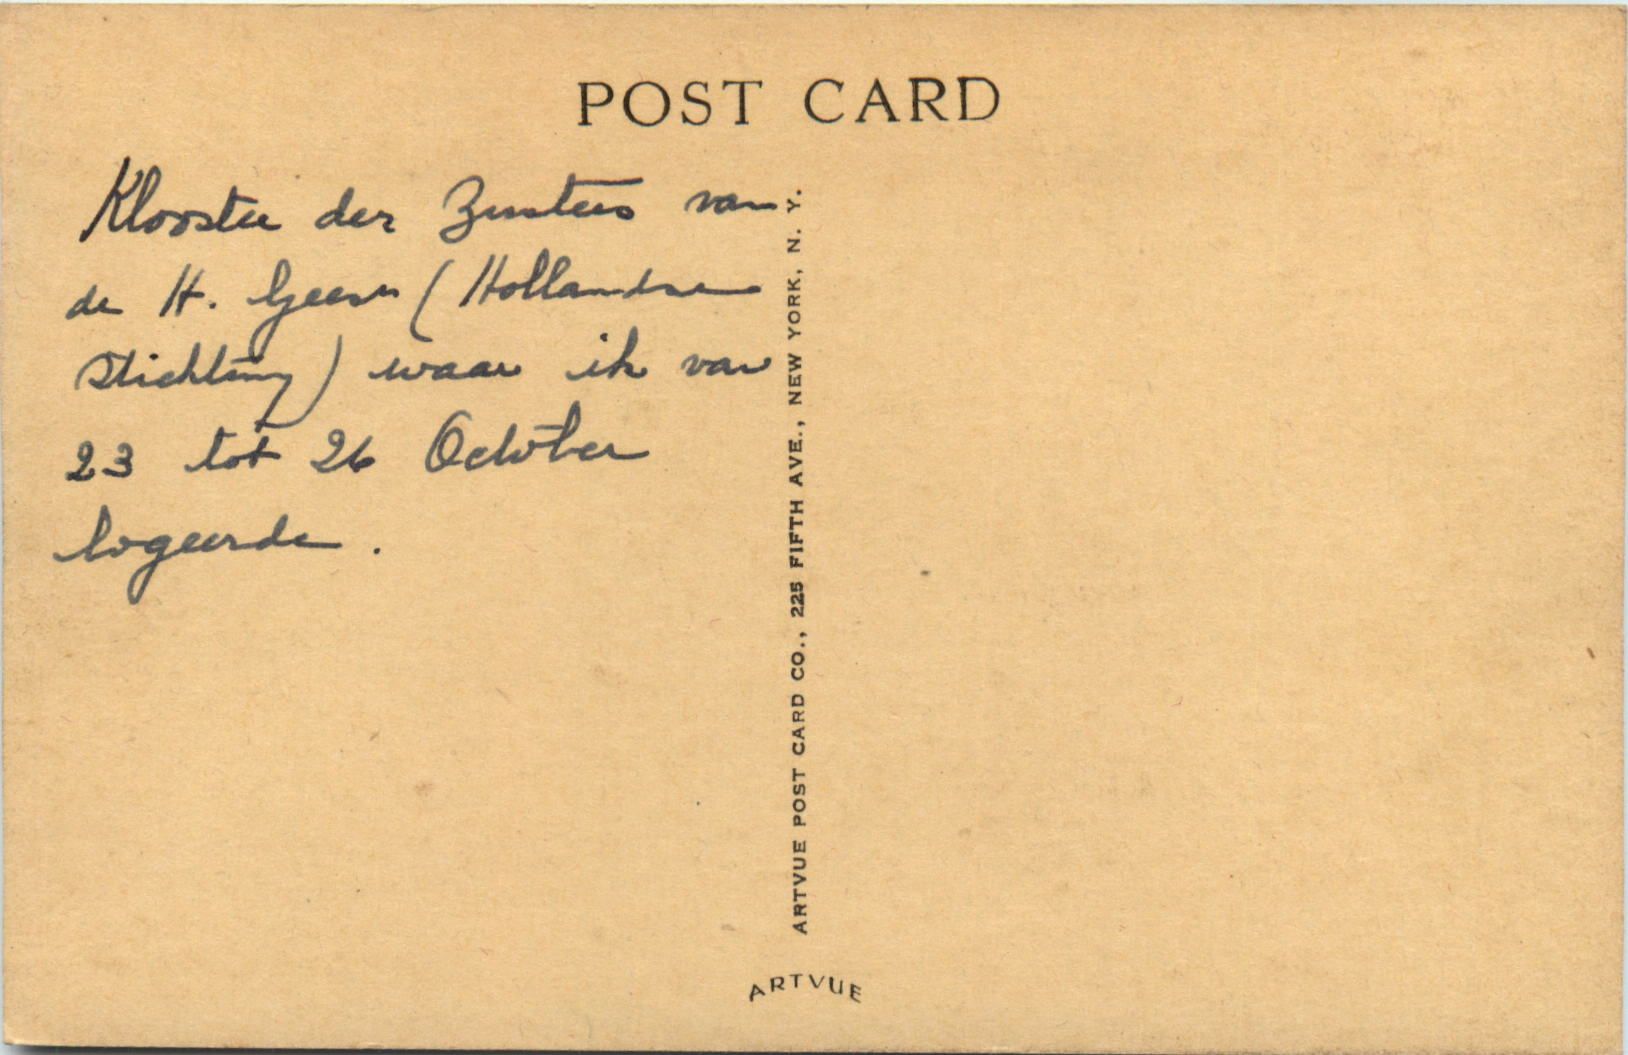 POST CARD
Klooster der Zusters van
de H. Geest (Hollandse
stichting) waar ik van
23 tot 26 October
logeerde.
ARTVUE POST CARD CO., 225 FIFTH AVE., NEW YORK, N. Y.
ARTVUE